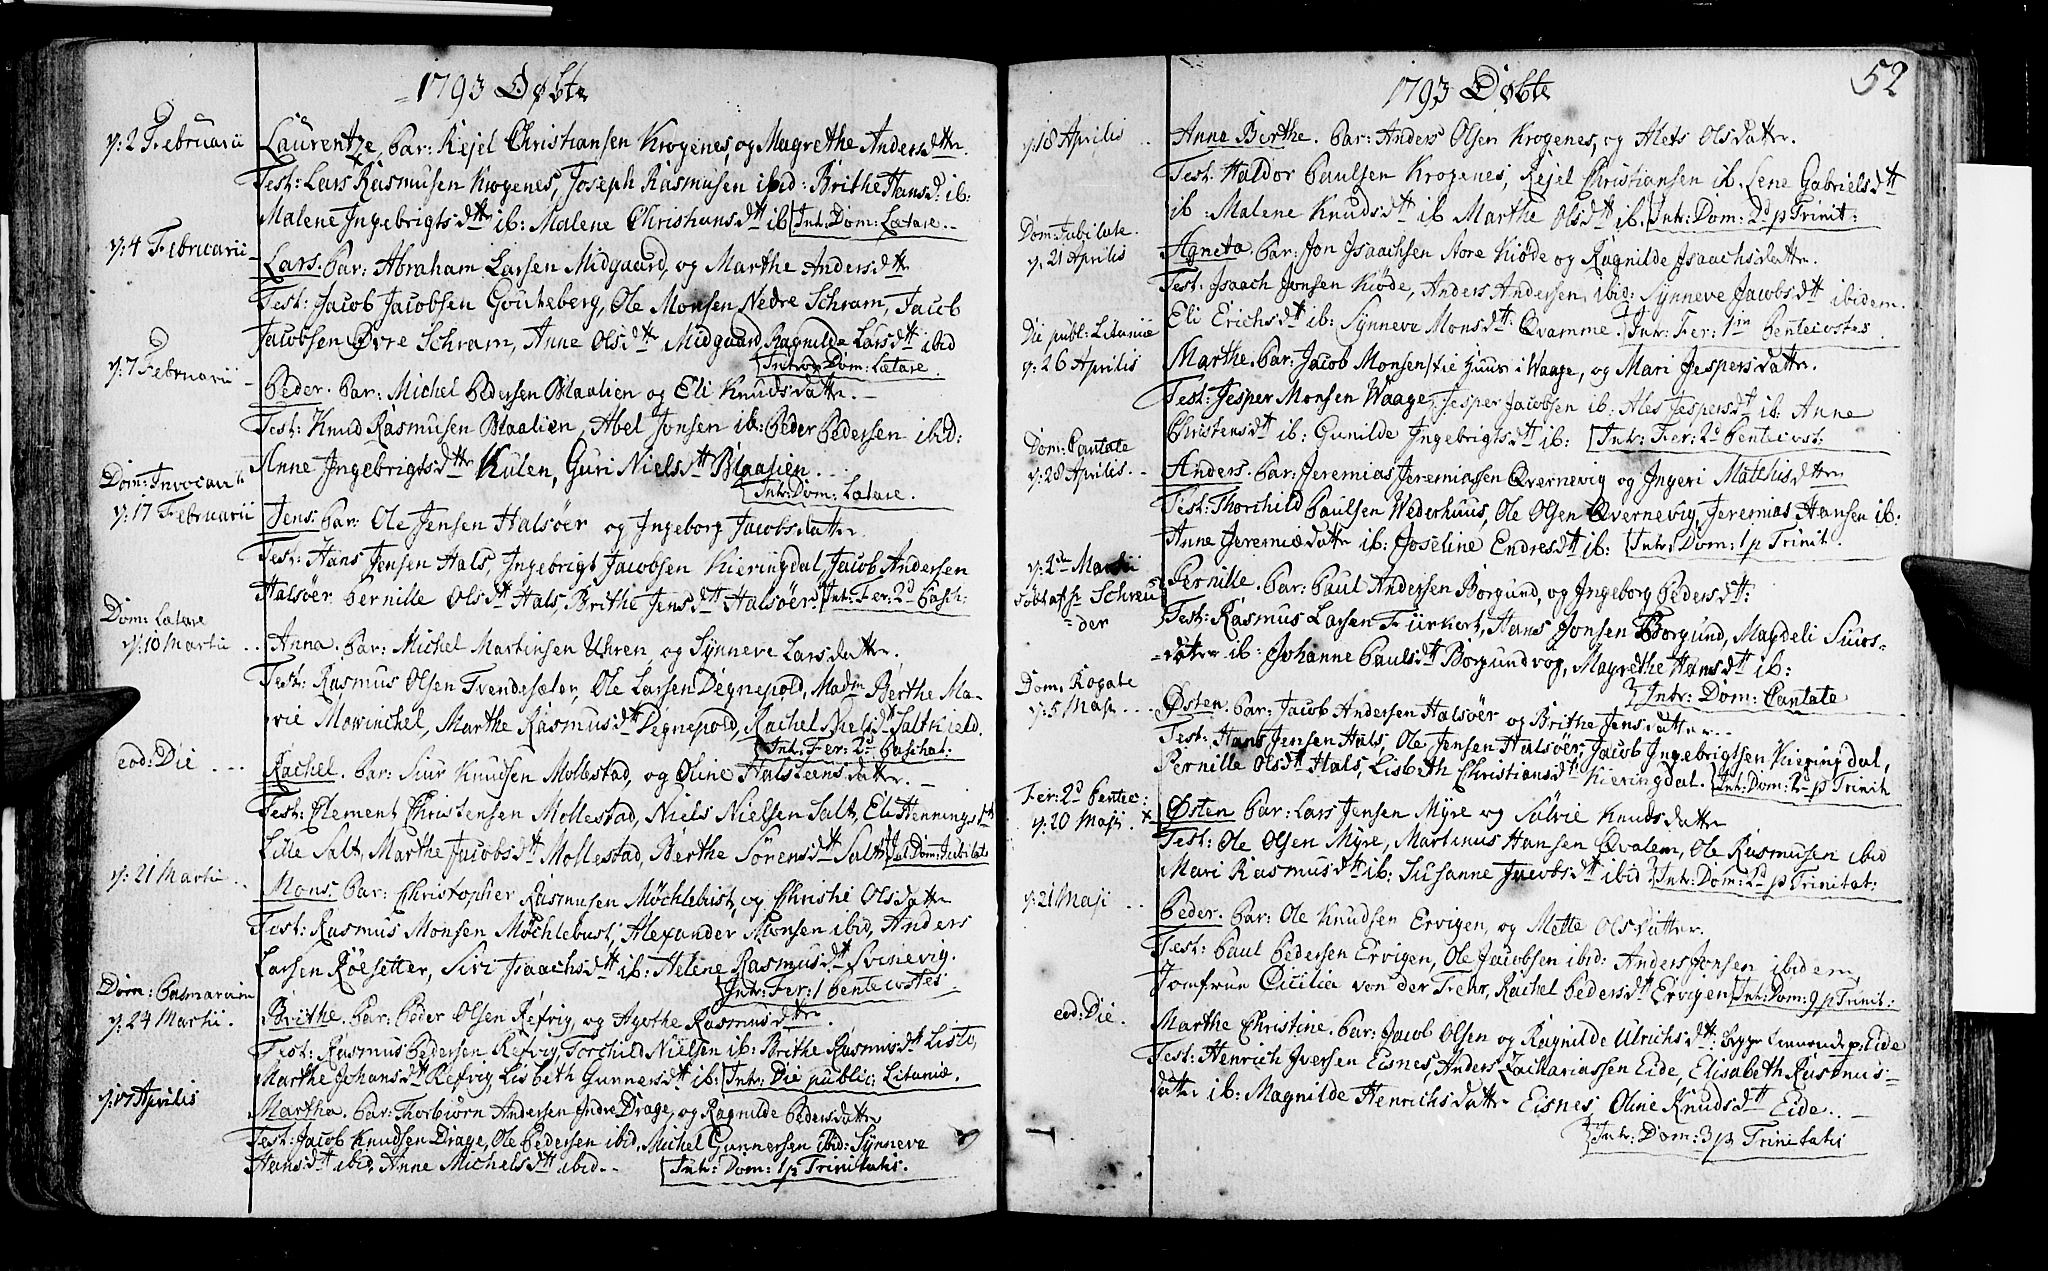 1793 Døbte
d: 2 Februarii
Laurentze, Par: Kiel Christiansen Krogenes, og Magrethe Andersdttr.
Test: Lars Rasmusen Krogenes, Joseph Rasmusen ibid: Brithe Hansd: ib:
Malene Ingebrigtsdttr ib: Malene Christiansdtt ib Intr: Dom: Lætare.
d: 4 Februarii
Lars. Par: Abraham Larsen Midgaard, og Marthe Andersdttr
Test: Jacob Jacobsen Gouteberg, Ole Monsen Nedre Schram, Jacob
Jacobsen Øvre Schram, Anne Olsdttr Midgaard, Ragnilde Larsdtt ibid
Introd: Dom: Lætare.
d: 7 Februarii
Peder. Par: Michel Pedersen Blaalien og Eli Knudsdattr.
Test: Knud Rasmusen Blaalien, Abel Jonsen ib: Peder Pedersen ibid:
Anne Ingebrigtsdttr Kulen, Guri Nielsdtt Blaalien.
Intr: Dom: Lætare.
Dom: Invocavit
d: 17 Februarii
Jens. Par: Ole Jensen Halsøer og Ingeborg Jacobsdattr.
Test: Hans Jensen Hals, Ingebrigt Jacobsen Kieringdal, Jacob Andersen
Halsøer Pernille Olsdtt Hals, Brithe Jensdtt Halsøer. Intr: Fer: 2d Pasch:
Dom: Lætare
d: 10 Martii
Anna. Par: Michel Martinsen Uhren og Synneve Larsdattr.
Test: Rasmus Olsen Tvendesæter, Ole Larsen Degnepold, Madm Berthe Ma-
rie Mowinchel, Marthe Rasmusdtt Degnepold, Rachel Nielsdtt Saltkield.
Intr: Fer: 2d Paschat:
eod: Die
Rachel. Par: Siur Knudsen Mollestad, og Oline Halsteensdattr.
Test: Clement Christensen Mollestad, Niels Nielsen Salt, Eli Henningsdtt
Lille Salt, Marthe Jacobsdtt Mollestad, Berthe Sørensdtt Salt Int Dom: Jubilate
d: 21 Martii
Mons. Par: Christopher Rasmusen Möchlebust, og Christie Olsdattr
Test: Rasmus Monsen Möchlebust, Alexander Monsen ibid, Anders
Larsen Röesetter, Siri Isaachsdtt ib: Helene Rasmusdtt Svinevig.
Intr: Fer: 1 Pentecostes
Dom: Pasmarum
d: 24 Martii.
Brithe. Par: Peder Olsen Refvig, og Agethe Rasmusdttr.
Test: Rasmus Pedersen Refvig, Torchild Nielsen ib: Brithe Rasmusdtt Liste,
Marthe Johansdtt Refvig Lisbeth Gunnersdtt ib: Intr: Die public: Litaniæ.
d: 17 Aprilis
Martha. Par: Thorbiørn Andersen Indre Drage, og Ragnilde Pedersdattr
Test: Jacob Knudsen Drage, Ole Pedersen ibid, Michel Gunnersen ibid: Synneve
Hansdtt ibid, Anne Michelsdtt ibid.
Intr: Dom: 1 p Trinitatis.
1793 Døbte
52
d: 18 Aprilis
Anne Berthe. Par: Anders Olsen Krogenes, og Alets Olsdattr.
Test: Haldor Paulsen Krogenes, Kiel Christiansen ib. Lene Gabrielsdtt
ib: Malene Knudsdtt ib Marthe Olsdtt ib. Intr: Dom: 2d p Trinit:
Dom: Jubilate.
d: 21 Aprilis
Agneta. Par: Jon Isaachsen store Kiöde og Ragnilde Isaachsdattr.
Test: Isaach Jonsen Kiöde, Anders Andersen ibid: Synneve Jacobsdtt ibidem.
Eli Erichsdtt ib: Synneve Monsdtt: Qvamme. Intr: Fer: 1m Pentecostes
Die publ: Litaniæ
d: 26 Aprilis
Marthe. Par: Jacob Monsen i Waage, og Mari Jespersdattr.
Test: Jesper Monsen Waage, Jesper Jacobsen ib: Ales Jespersdtt ib: Anne
Christensdtt ib: Gunilde Ingebrigtsdtt ib: Intr: Fer: 2d Pentecost:
Dom: Cantate
d: 28 Aprilis.
Anders. Par: Jeremias Jeremiassen Qvernevig og Ingeri Mathisdttr
Test: Thorchild Paulsen Wederhuus, Ole Olsen Qvernevig, Jeremias Hansen ib:
Anne Jeremiædattr ib: Joseline Endresdtt ib: Intr: Dom: 1 p Trinit.
d: 2de Maii
Schreu
=der
Pernille. Par: Paul Andersen Borgund, og Ingeborg Pedersdtt:
Test: Rasmus Larsen Fiirkort, Hans Jonsen Borgund, Magdeli Siurs-
dattr ib: Johanne Paulsdtt Borgundvog, Magrethe Hansdtt ib:
Intr: Dom: Cantate
Dom: Rogate
d: 5 Maji
Østen. Par: Jacob Andersen Halsöer og Brithe Jensdattr.
Test: Hans Jensen Hals, Ole Jensen Halsöer, Jacob Ingebrigtsen Kieringdal,
Pernille Olsdtt Hals, Lisbeth Christiansdtt Kieringdal. Int: Dom: 2d p Trinit
Fer: 2d Pentec:
d: 20 Maji. x
Østen Par: Lars Jensen Myre og Sølvie Knudsdattr
Test: Ole Olsen Myre, Martinus Hansen Qvalem, Ole Rasmusen ibid
Mari Rasmusdtt ib: Susanne Jacobsdtt ibid Intr: Dom: 2d p Trinitat:
d: 21 Maji
Peder. Par: Ole Knudsen Ervigen, og Mette Olsdatter.
Test: Paul Pedersen Ervigen, Ole Jacobsen ibid: Anders Jonsen ibidem
Jomfrue Cicilia von der Fehr, Rachel Pedersdtt Ervigen Intr: Dom: 9 p Trinit:
eod: Die.
Marthe Christine. Par: Jacob Olsen og Ragnilde Ulrichsdtt: Eide
Test: Henrich Iversen Eisnes, Anders Zachariassen Eide, Elisabeth Rasmus-
dattr ib: Magnilde Henrichsdattr Eisnes, Oline Knudsdtt Eide.
Intr: Dom: 3 p Trinitatis